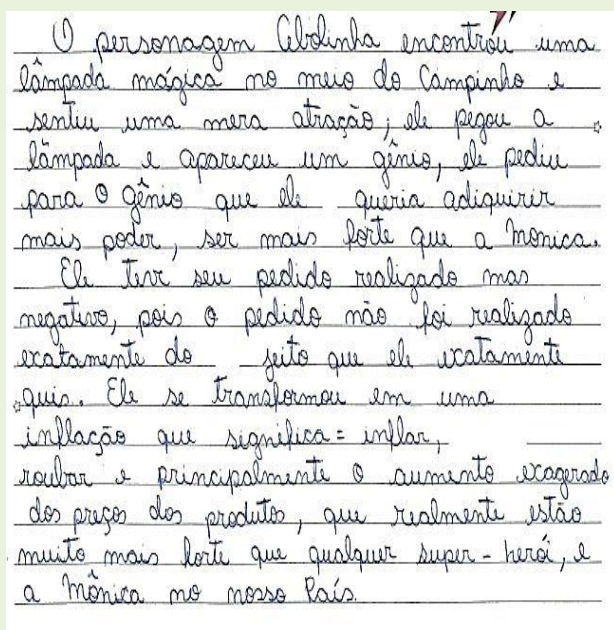 O personagem Cebolinha encontrou uma
lâmpada mágica no meio do Campinho e
sentiu uma mera atração, ele pegou a
lâmpada e apareceu um gênio, ele pediu
para o gênio que ele queria adiquirir
mais poder, ser mais forte que a Monica.
Ele teve seu pedido realizado mas
negativo, pois o pedido não foi realizado
exatamente do jeito que ele exatamente
quis. Ele se transformou em uma
inflação que significa = inflar,
roubar e principalmente o aumento exagerado
dos preços dos produtos, que realmente estão
muito mais forte que qualquer super-herói, e
a Mônica no nosso País.